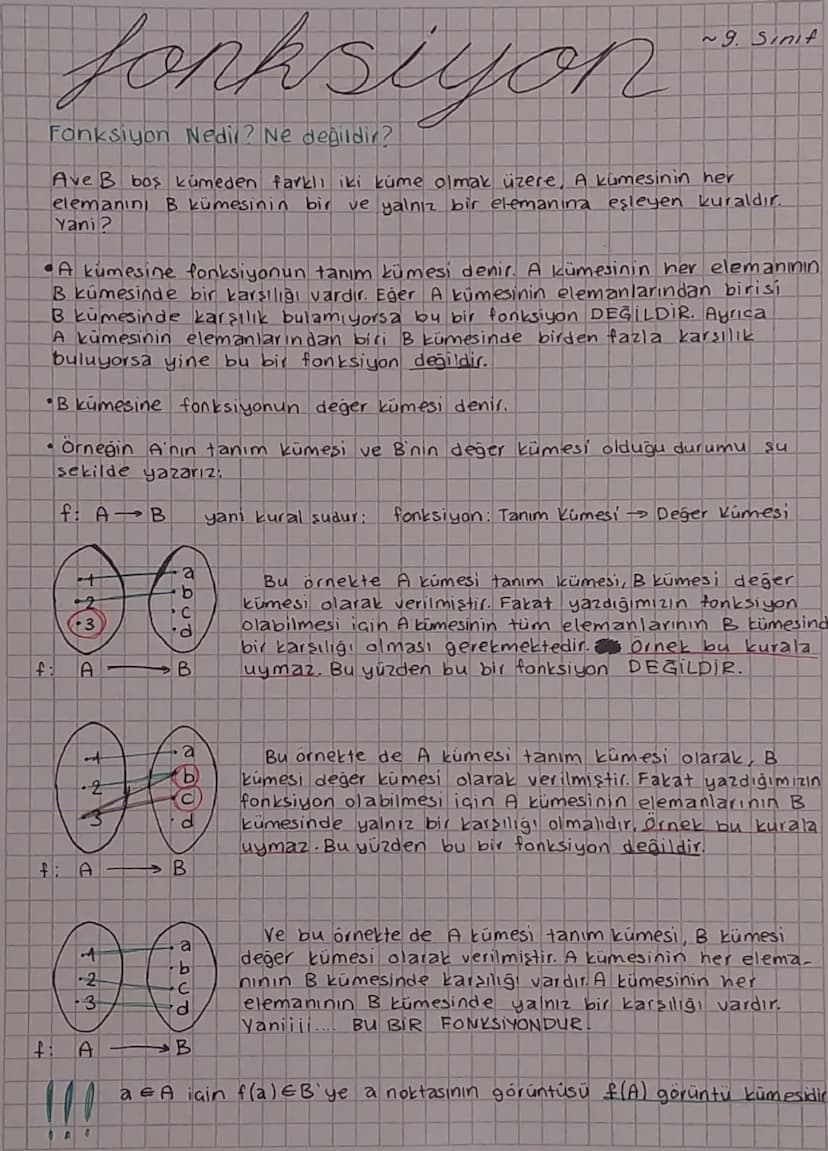 fonksiyon
~9. Sınıf
Fonksiyon Nedir? Ne değildir?
A ve B boş kümeden farklı iki küme olmak üzere, A kümesinin her
elemanını B kümesinin bir ve yalnız bir elemanına eşleyen kuraldır.
Yani?
• A kümesine fonksiyonun tanım kümesi denir. A kümesinin her elemanının
B kümesinde bir karşılığı vardır. Eğer A kümesinin elemanlarından birisi
B kümesinde karşılık bulamıyorsa bu bir fonksiyon DEĞİLDİR. Ayrıca
A kümesinin elemanlarından biri B kümesinde birden fazla karşılık
buluyorsa yine bu bir fonksiyon değildir.
• B kümesine fonksiyonun değer kümesi denir.
• Örneğin A'nın tanım kümesi ve B'nin değer kümesi olduğu durumu şu
şekilde yazarız:
f: A → B yani kural şudur: fonksiyon: Tanım Kümesi → Değer Kümesi
1 a
2 b
3 c
d
f: A → B
Bu örnekte A kümesi tanım kümesi, B kümesi değer
kümesi olarak verilmiştir. Fakat yazdığımızın fonksiyon
olabilmesi için A kümesinin tüm elemanlarının B kümesind
bir karşılığı olması gerekmektedir. Örnek bu kurala
uymaz. Bu yüzden bu bir fonksiyon DEĞİLDİR.
1 a
2 b
3 c
d
f: A → B
Bu örnekte de A kümesi tanım kümesi olarak, B
kümesi değer kümesi olarak verilmiştir. Fakat yazdığımızın
fonksiyon olabilmesi için A kümesinin elemanlarının B
kümesinde yalnız bir karşılığı olmalıdır. Örnek bu kurala
uymaz. Bu yüzden bu bir fonksiyon değildir.
1 a
2 b
3 c
d
f: A → B
Ve bu örnekte de A kümesi tanım kümesi, B kümesi
değer kümesi olarak verilmiştir. A kümesinin her elema-
nının B kümesinde karşılığı vardır. A kümesinin her
elemanının B kümesinde yalnız bir karşılığı vardır.
Yaniiii.... BU BİR FONKSİYONDUR!
!!! a ∈ A için f(a) ∈ B'ye a noktasının görüntüsü f(A) görüntü kümesidir